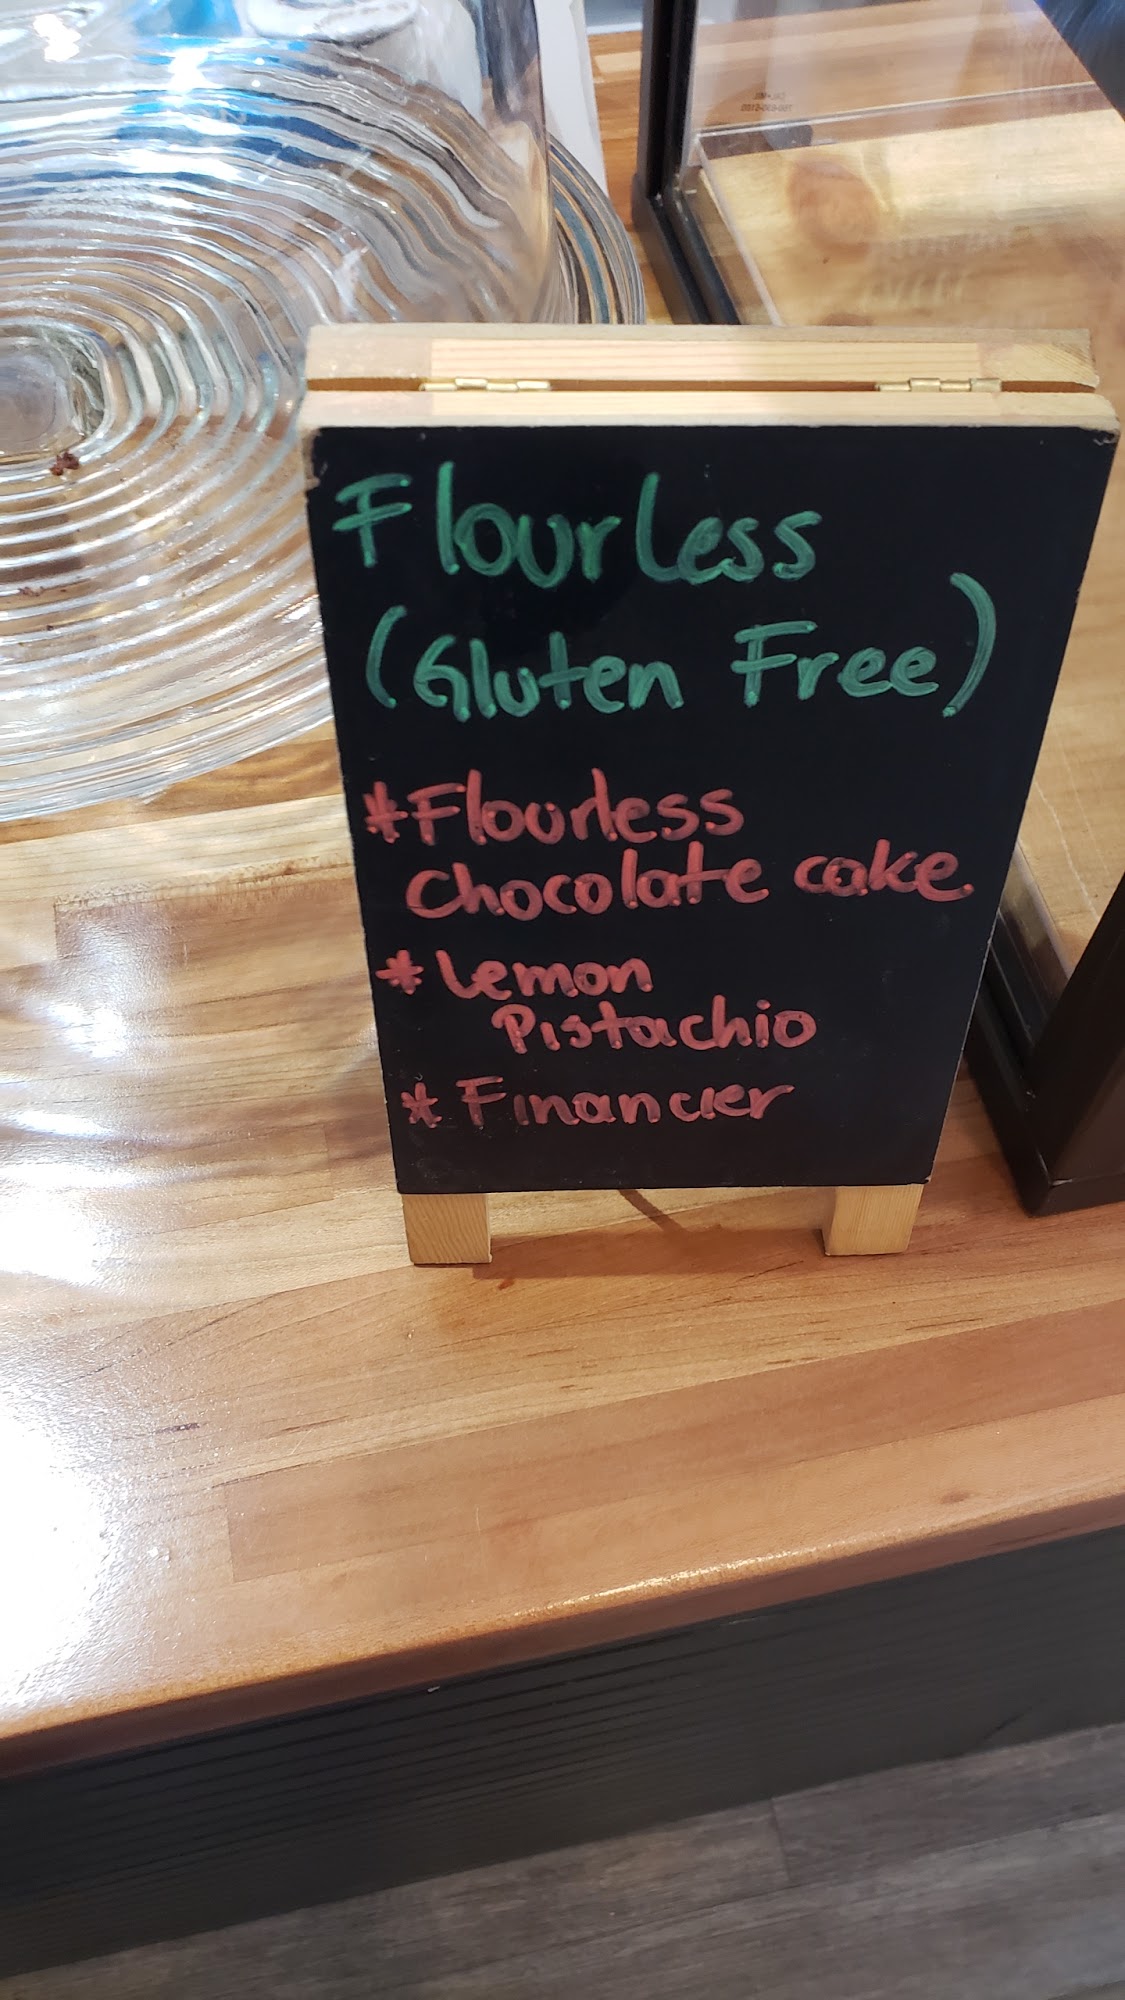 Flourless
(Gluten Free)
*Flourless
Chocolate cake.
* Lemon
Pistachio
* Financier